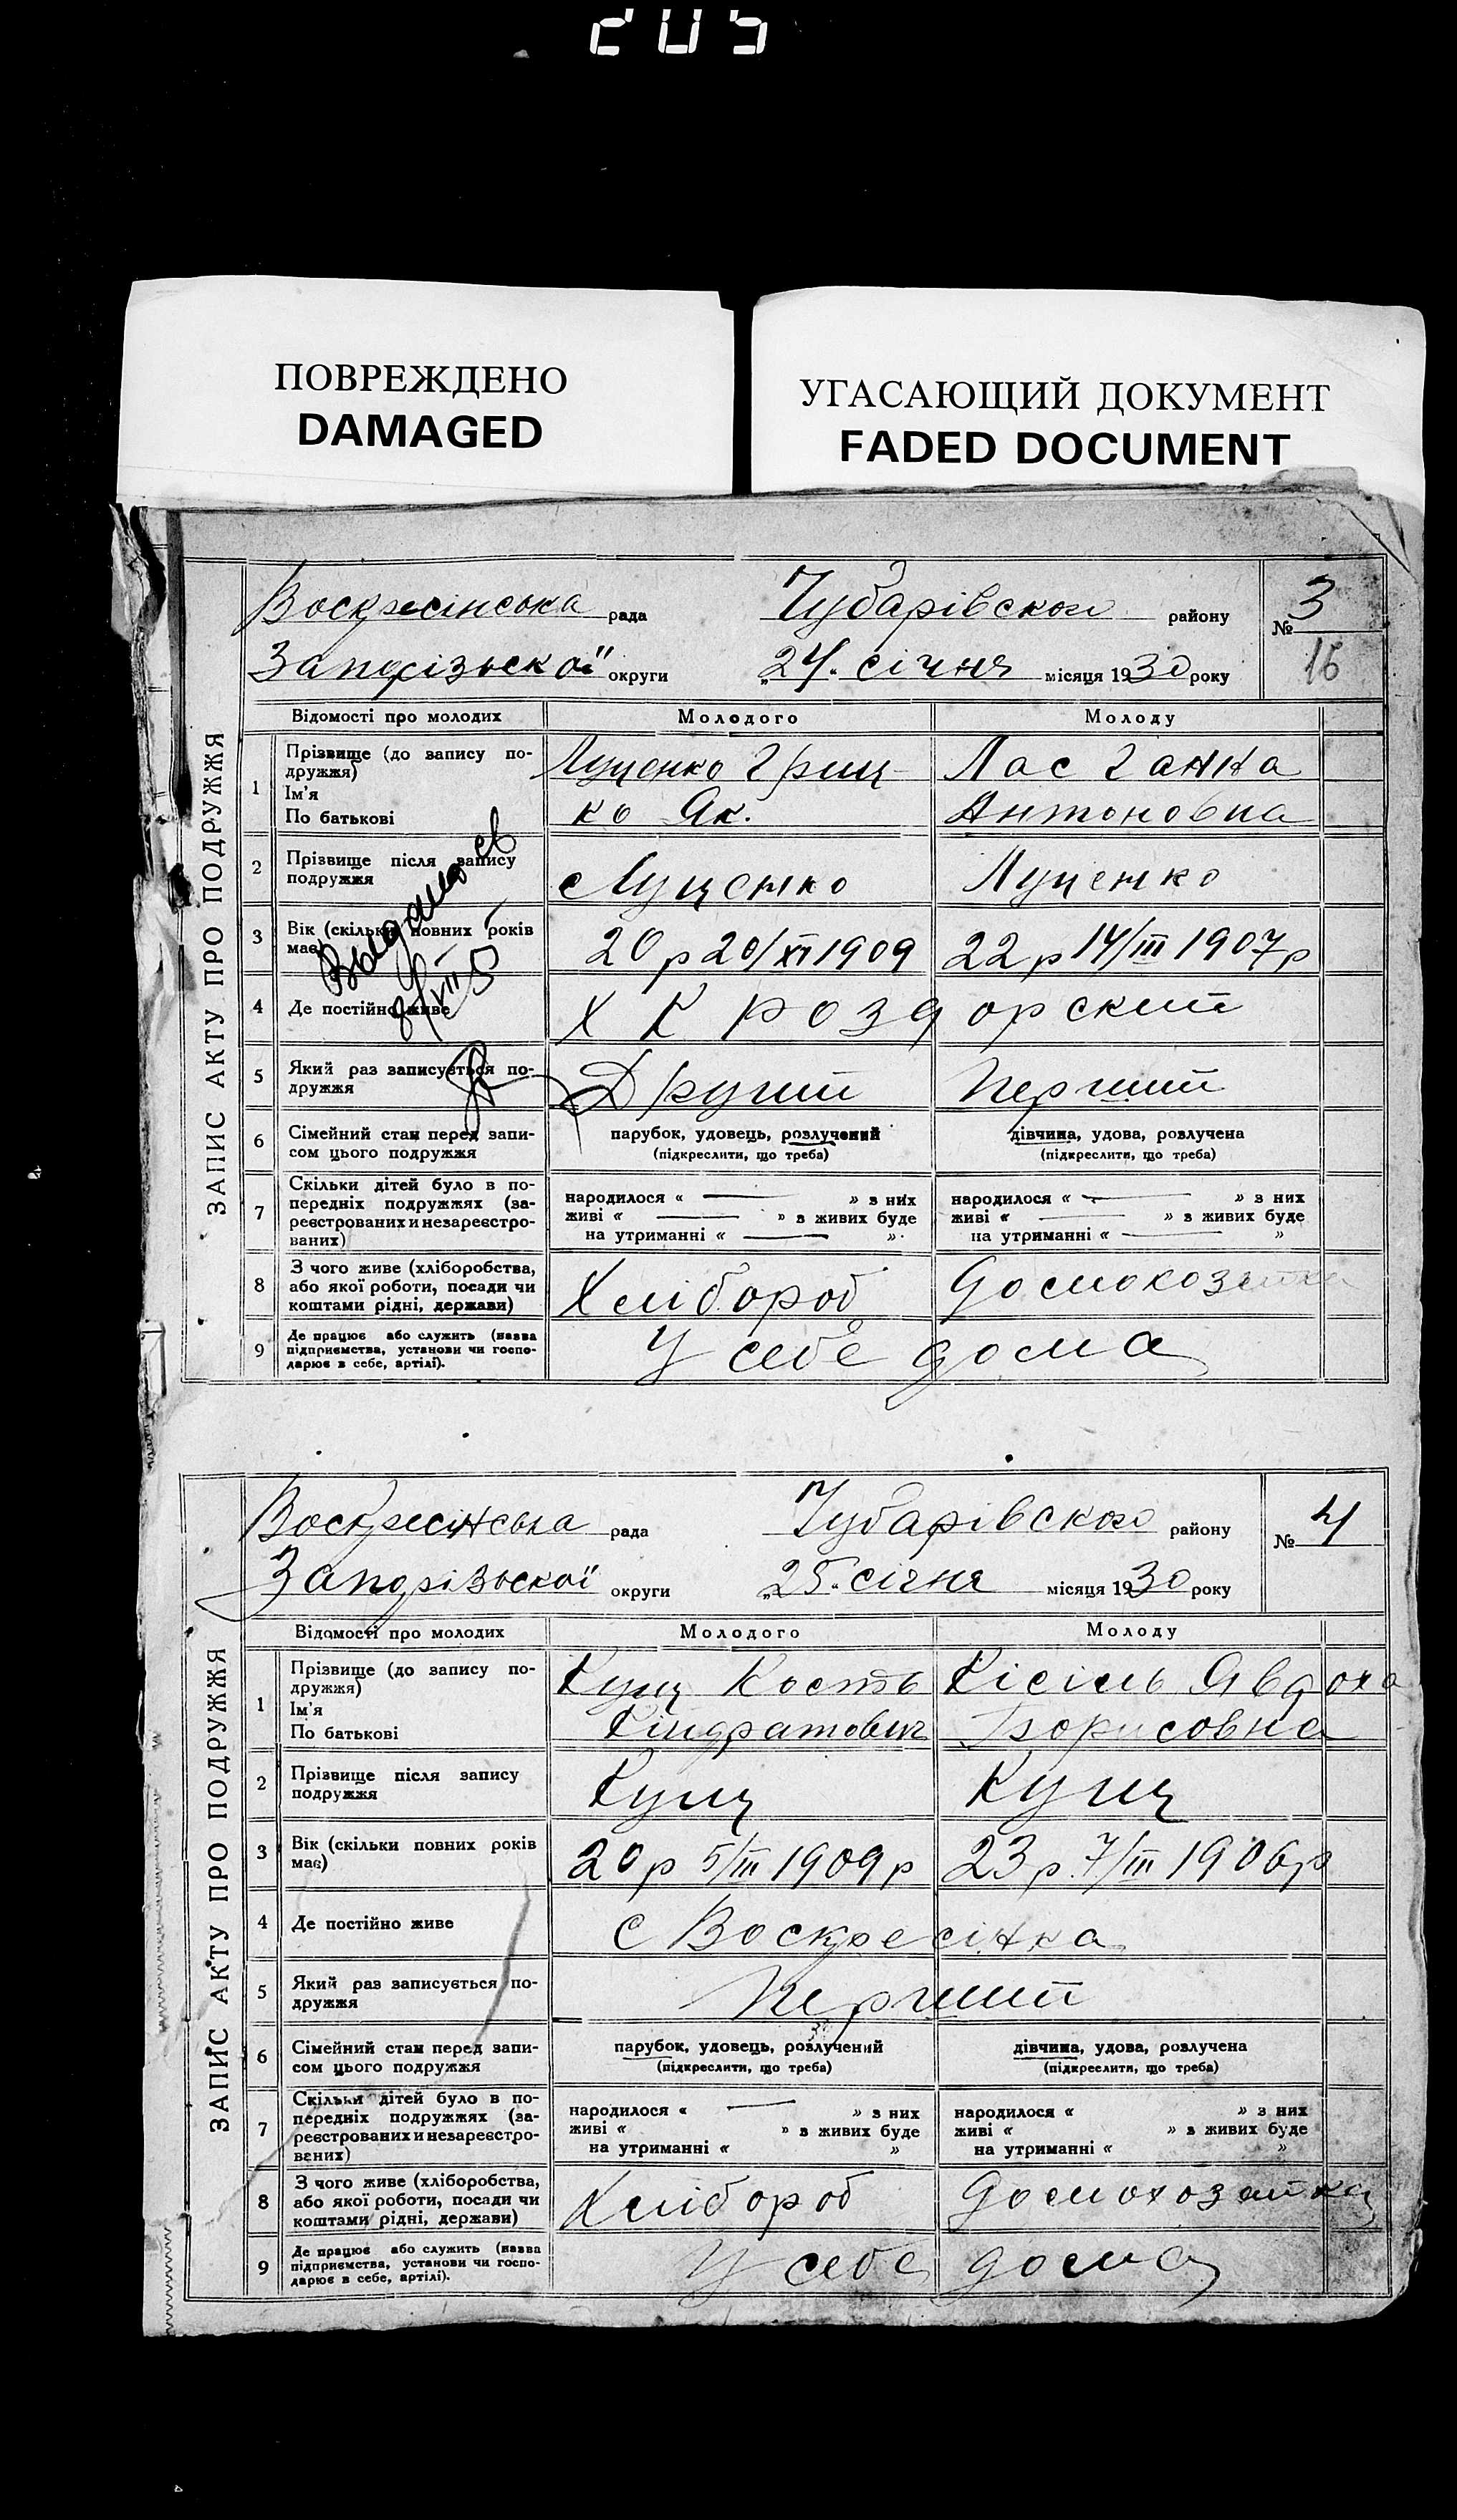 205
ПОВРЕЖДЕНО
DAMAGED
УГАСАЮЩИЙ ДОКУМЕНТ
FADED DOCUMENT
ЗАПИС АКТУ ПРО ПОДРУЖЖЯ
Воскресінська рада Чубарівского району № 3
Запорізьскої округи „24" січня місяця 1930 року 16
Відомості про молодих Молодого Молоду
1 Прізвище (до запису по-
дружжя)
Ім'я
По батькові
Луценко Гриц-
ко Як.
Лас Ганна
Антоновна
2 Прізвище після запису
подружжя
Луценко Луценко
3 Вік (скільки повних років
має)
20 р 20/XI 1909 22 р 14/III 1907 р
4 Де постійно живе
Х К роздорский
5 Який раз записується по-
дружжя
Другий Перший
6 Сімейний стан перед запи-
сом цього подружжя
парубок, удовець, розлучений
(підкреслити, що треба)
дівчина, удова, розлучена
(підкреслити, що треба)
7 Скільки дітей було в по-
передніх подружжях (за-
реєстрованих и незареєстро-
ваних)
народилося « — » з них
живі « — » з живих буде
на утриманні « — »
народилося « — » з них
живі « — » з живих буде
на утриманні « — »
8 З чого живе (хліборобства,
або якої роботи, посади чи
коштами рідні, держави)
Хлібороб домохозяйка
9 Де працює або служить (назва
підприємства, установи чи госпо-
дарює в себе, артілі).
У себе дома
ЗАПИС АКТУ ПРО ПОДРУЖЖЯ
Воскресінська рада Чубарівского району № 4
Запорізьскої округи „25" січня місяця 1930 року
Відомості про молодих Молодого Молоду
1 Прізвище (до запису по-
дружжя)
Ім'я
По батькові
Кущ Кость
Кіндратович
Кісіль Явдоха
Борисовна
2 Прізвище після запису
подружжя
Кущ Кущ
3 Вік (скільки повних років
має)
20 р 5/III 1909 р 23 р. 7/III 1906 р
4 Де постійно живе
С Воскресінка
5 Який раз записується по-
дружжя
Перший
6 Сімейний стан перед запи-
сом цього подружжя
парубок, удовець, розлучений
(підкреслити, що треба)
дівчина, удова, розлучена
(підкреслити, що треба)
7 Скільки дітей було в по-
передніх подружжях (за-
реєстрованих и незареєстро-
ваних)
народилося « — » з них
живі « » з живих буде
на утриманні « »
народилося « » з них
живі « » з живих буде
на утриманні « »
8 З чого живе (хліборобства,
або якої роботи, посади чи
коштами рідні, держави)
Хлібороб домохозяйка
9 Де працює або служить (назва
підприємства, установи чи госпо-
дарює в себе, артілі).
У себе дома